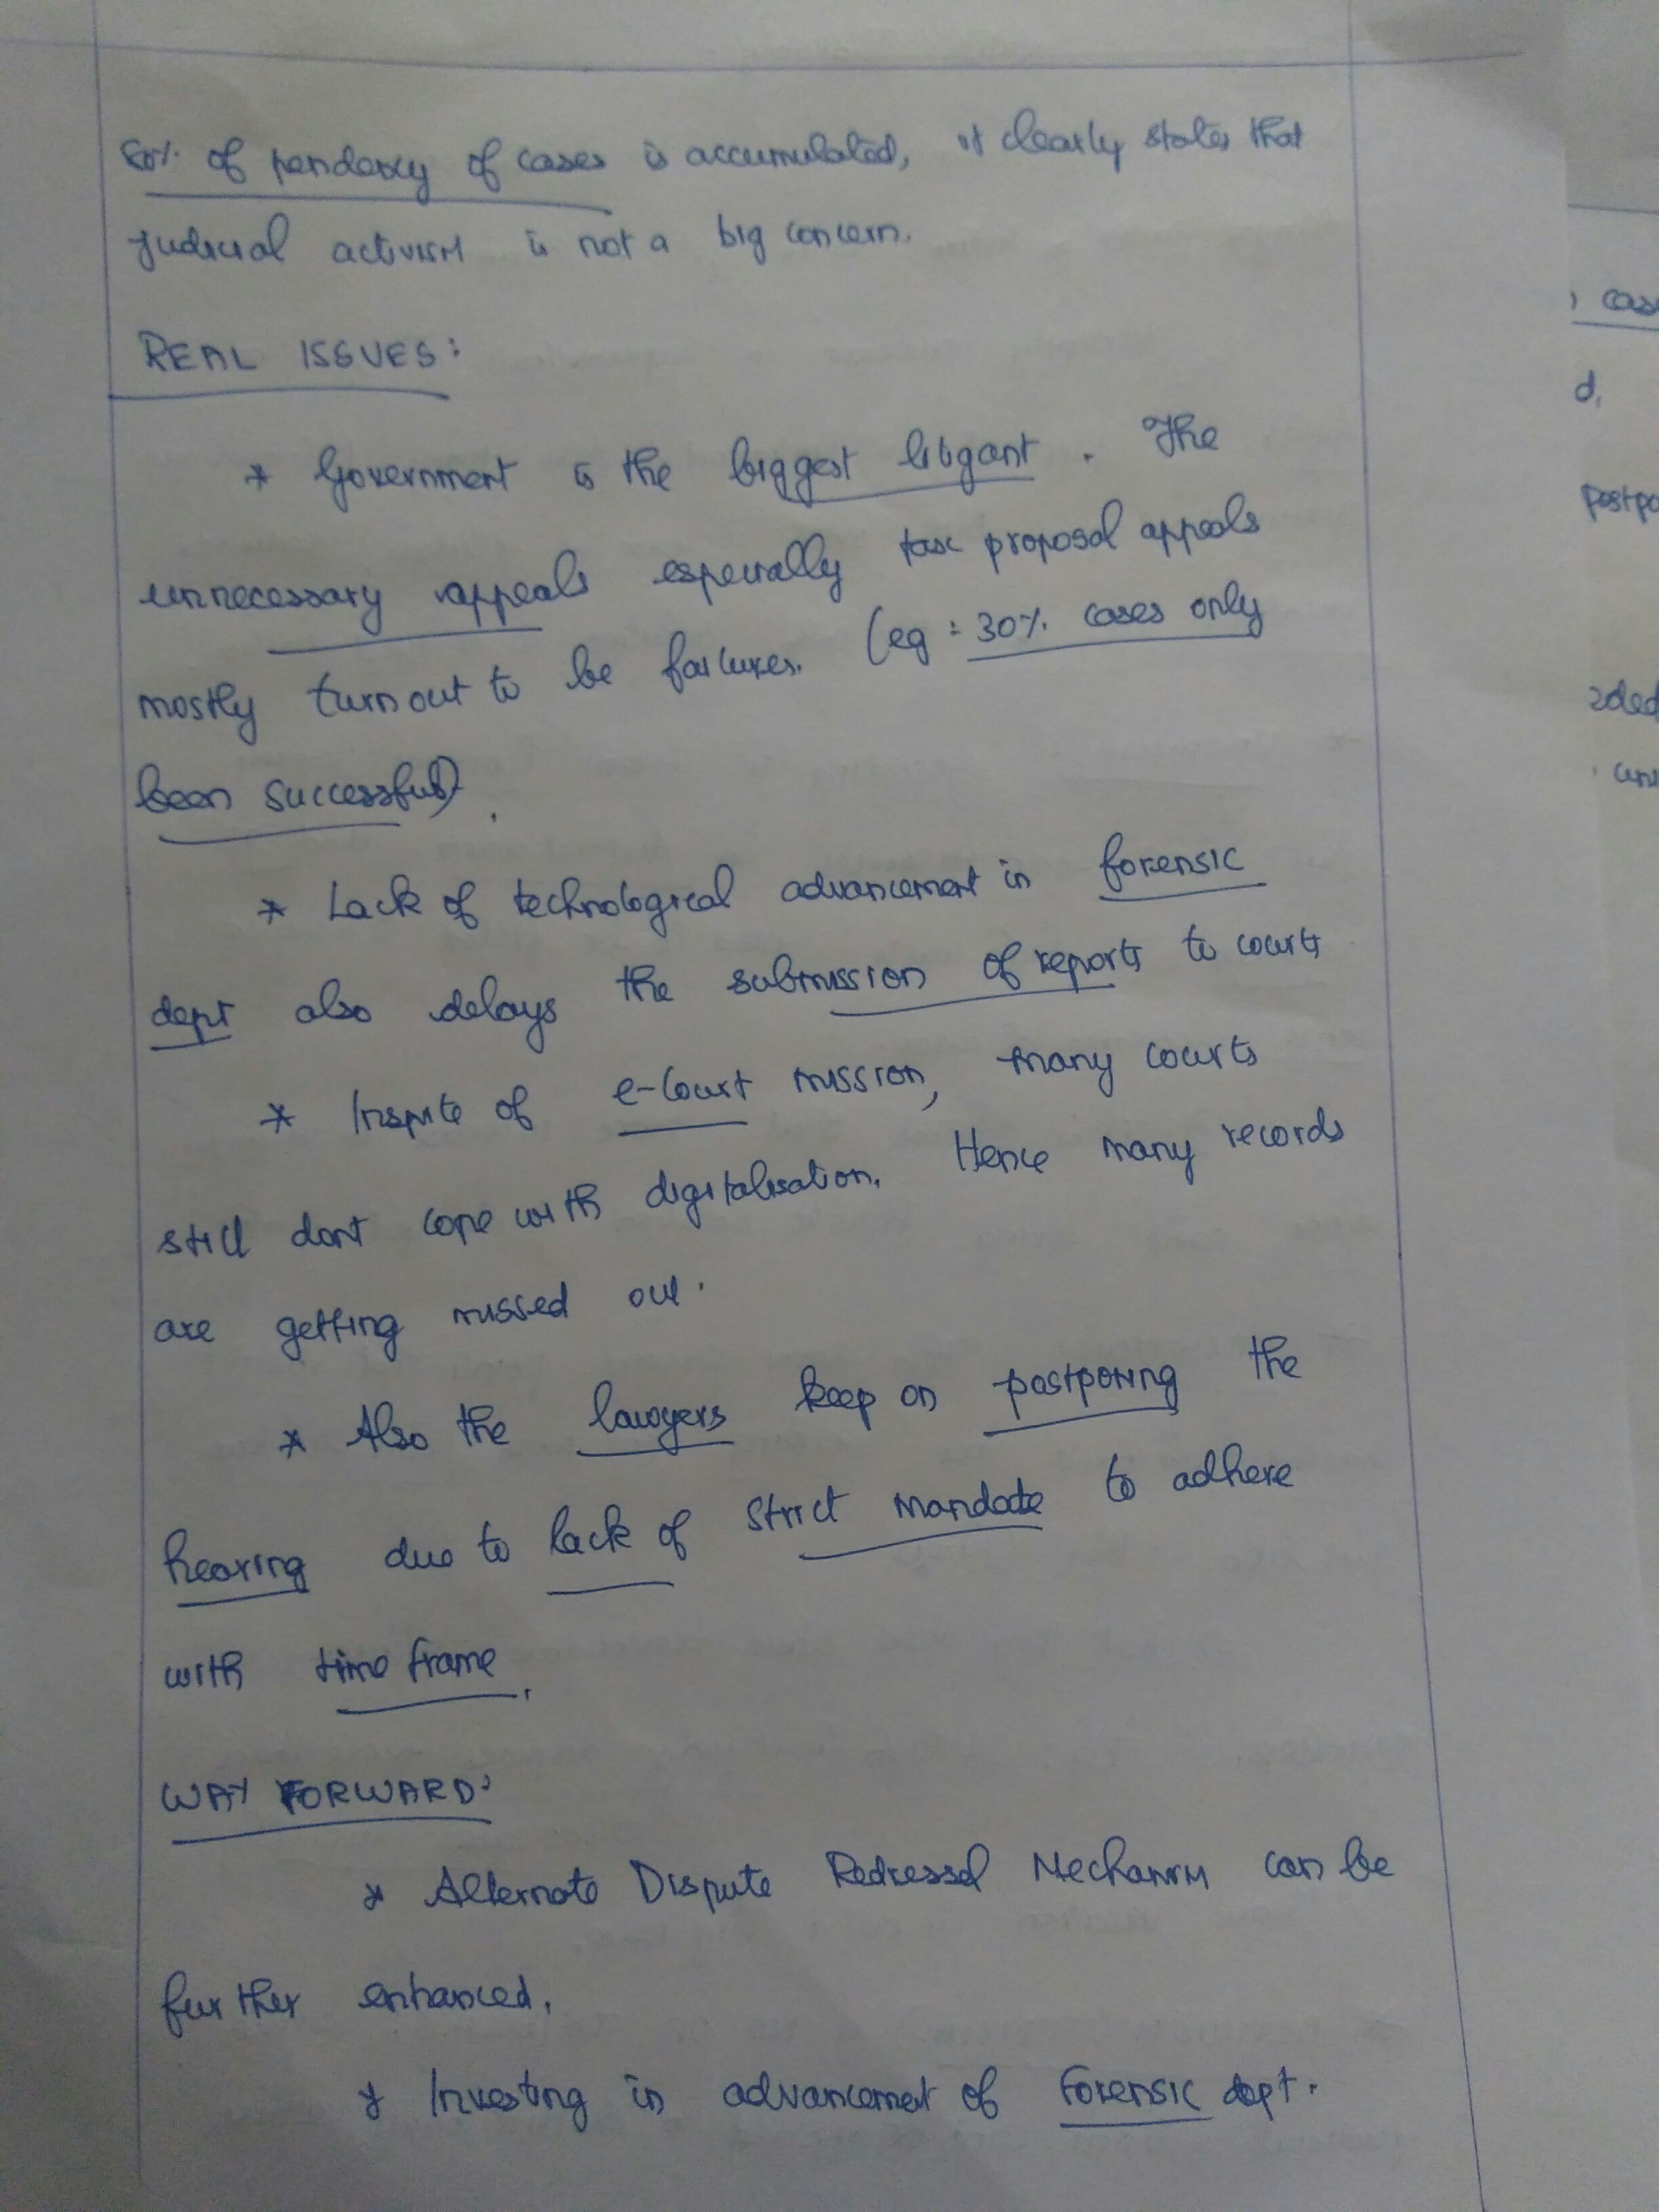 80% of pendency of cases is accumulated, it clearly states that
judicial activism is not a big concern.
REAL ISSUES:
* Government is the biggest litigant. The
unnecessary appeals especially tax proposal appeals
mostly turn out to be failures. (eg: 30% cases only
been successful).
* Lack of technological advancement in forensic
dept also delays the submission of reports to courts
* Inspite of e-Court mission, many courts
still dont cope with digitalisation. Hence many records
are getting missed out.
* Also the lawyers keep on postponing the
hearing due to lack of strict mandate to adhere
with time frame.
WAY FORWARD:
* Alternate Dispute Redressal Mechanism can be
further enhanced.
* Investing in advancement of Forensic dept.
, cas
d,
postpo